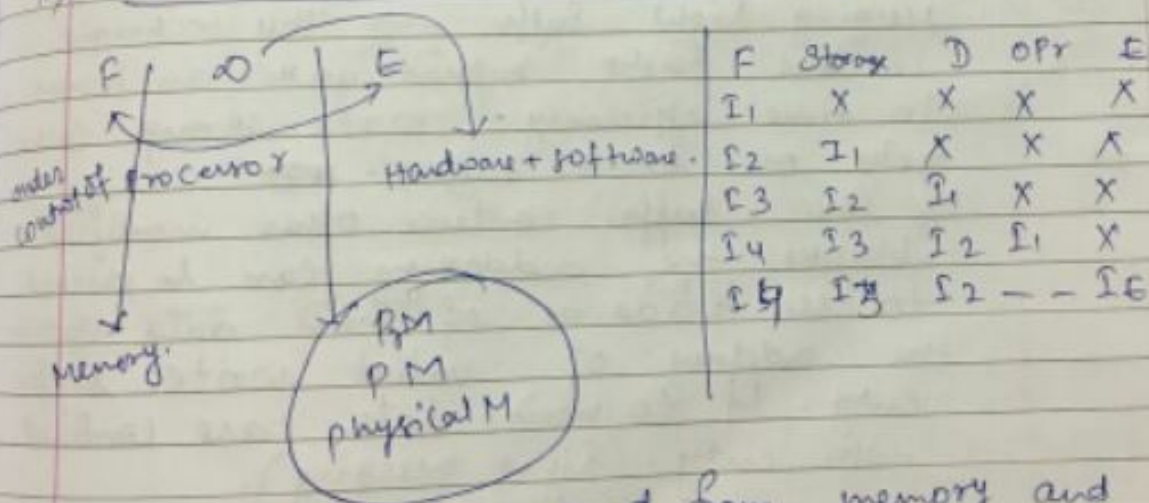 F D E
under control of Processor
Hardware + software.
Memory.
PM
physical M
F Storage D OPr E
I1 X X X X
I2 I1 X X X
I3 I2 I1 X X
I4 I3 I2 I1 X
I2 - -
from memory and